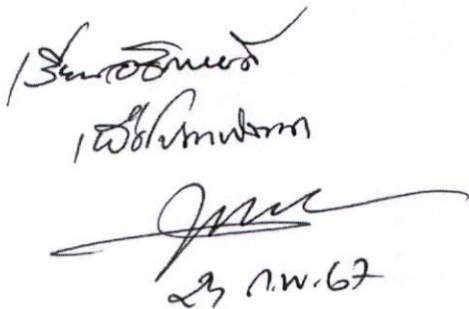 เรียนอธิการบดี
เพื่อโปรดพิจารณา
ก.พ. 67